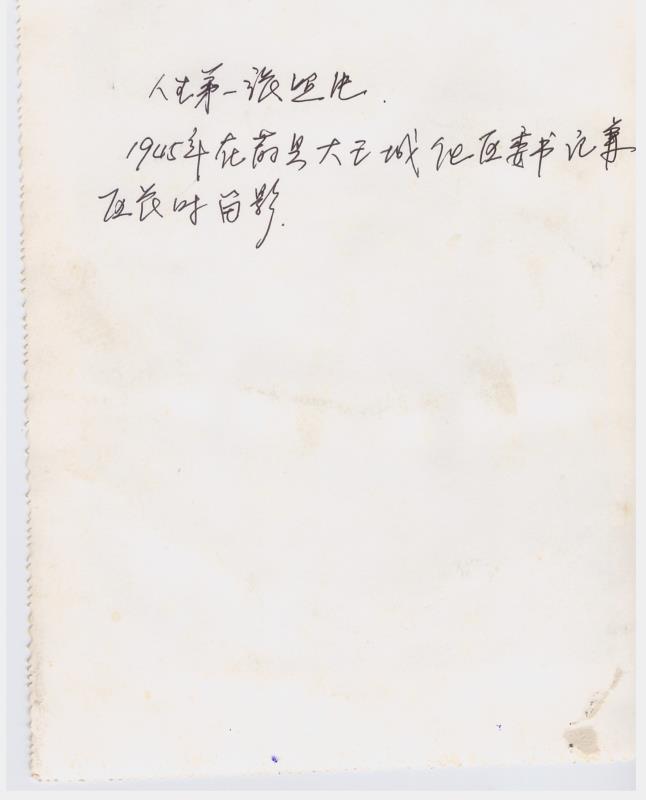 人生第一张照片.
1945年在蔚县大王城任区委书记兼
区长时留影.